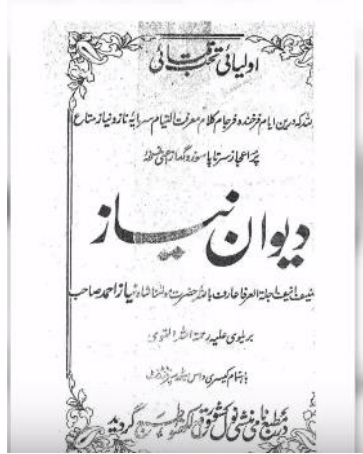 اولیائی تحت قبائی
للہ کہ درین ایام فرخندہ فرجام کلام معرفت التیام سرمایۂ ناز و نیاز متاع
پر اعجاز سرتاپا سوز و گداز
دیوان نیاز
اجلۃ العرفا عارف باللہ حضرت مولنا شاہ نیاز احمد صاحب
بریلوی علیہ رحمۃ اللہ القوی
باہتمام کیسری داس سیٹھ سپرنٹنڈنٹ
در مطبع نامی منشی نولکشور واقع لکھنؤ طبع گردید